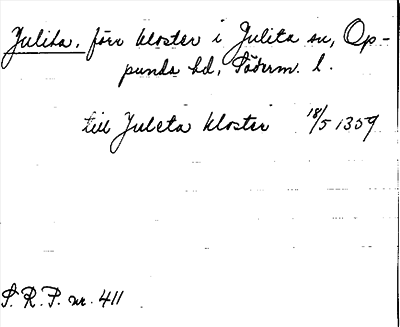 Julita. förr kloster i Julita sn, Op-
punda hd, Söderm. l.
till Juleta kloster 18/5 1359
S. R. P. nr. 411